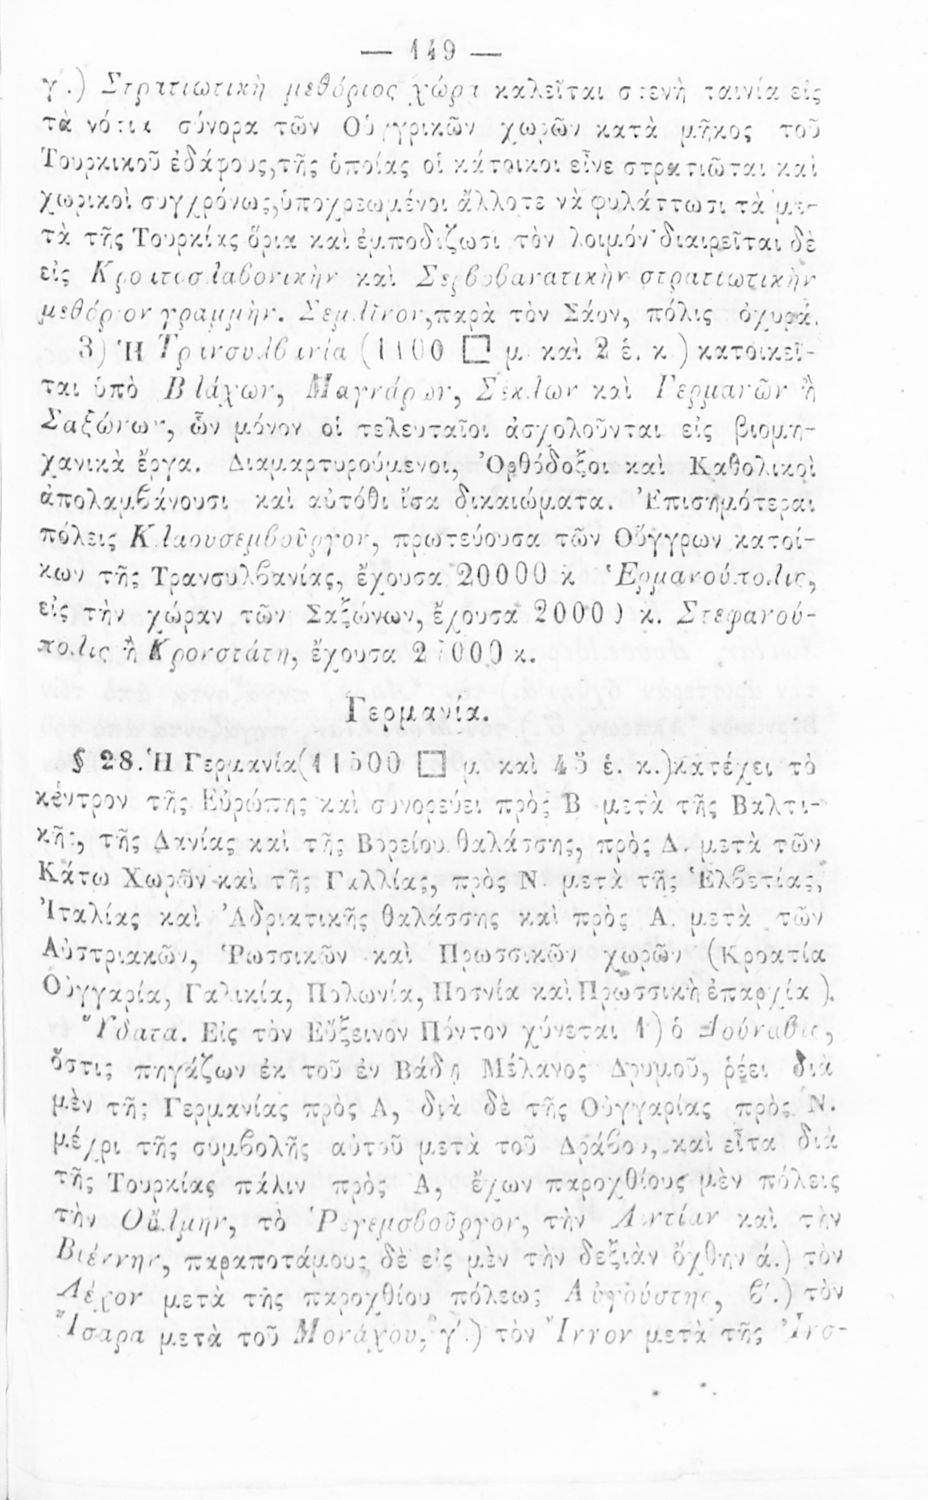 — 149 —
γ´.) Στρατιωτικὴ μεθόριος χώρα καλεῖται στενὴ ταινία εἰς
τὰ νότια σύνορα τῶν Οὑγγρικῶν χωρῶν κατὰ μῆκος τοῦ
Τουρκικοῦ ἐδάφους, τῆς ὁποίας οἱ κάτοικοι εἶνε στρατιῶται καὶ
χωρικοὶ συγχρόνως, ὑποχρεωμένοι ἄλλοτε νὰ φυλάττωσι τὰ με-
τὰ τῆς Τουρκίας ὅρια καὶ ἐμποδίζωσι τὸν λοιμόν· διαιρεῖται δὲ
εἰς Κροατοσλαβονικὴν καὶ Σερβοβανατικὴν στρατιωτικὴν
μεθόριον γραμμήν. Σεμλῖνον, παρὰ τὸν Σάον, πόλις ὀχυρά.
3) Ἡ Τρανσυλβανία (1100 □ μ. καὶ 2 ἑ. κ.) κατοικεῖ-
ται ὑπὸ Βλάχων, Μαγυάρων, Σεκλων καὶ Γερμανῶν ἢ
Σαξώνων, ὧν μόνον οἱ τελευταῖοι ἀσχολοῦνται εἰς βιομη-
χανικὰ ἔργα. Διαμαρτυρούμενοι, Ὀρθόδοξοι καὶ Καθολικοὶ
ἀπολαμβάνουσι καὶ αὐτόθι ἴσα δικαιώματα. Ἐπισημότεραι
πόλεις Κλαουσεμβοῦργον, πρωτεύουσα τῶν Οὕγγρων κατοί-
κων τῆς Τρανσυλβανίας, ἔχουσα 20000 κ. Ἑρμανούπολις,
εἰς τὴν χώραν τῶν Σαξώνων, ἔχουσα 20000 κ. Στεφανού-
πολις ἢ Κρονστάτη, ἔχουσα κ.
Γερμανία.
§ 28. Ἡ Γερμανία (11500 □ μ. καὶ 45 ἑ. κ.) κατέχει τὸ
κέντρον τῆς Εὐρώπης καὶ συνορεύει πρὸς Β μετὰ τῆς Βαλτι-
κῆς, τῆς Δανίας καὶ τῆς Βορείου θαλάσσης, πρὸς Δ. μετὰ τῶν
Κάτω Χωρῶν καὶ τῆς Γαλλίας, πρὸς Ν. μετὰ τῆς Ἑλβετίας,
Ἰταλίας καὶ Ἀδριατικῆς θαλάσσης καὶ πρὸς Α. μετὰ τῶν
Αὐστριακῶν, Ῥωσσικῶν καὶ Πρωσσικῶν χωρῶν (Κροατία
Οὑγγαρία, Γαλικία, Πολωνία, Ποσνία καὶ Πρωσσικὴ ἐπαρχία).
Ὕδατα. Εἰς τὸν Εὔξεινον Πόντον χύνεται 1) ὁ Δούναβις,
ὅστις πηγάζων ἐκ τοῦ ἐν Βάδῃ Μέλανος Δρυμοῦ, ῥέει διὰ
μὲν τῆς Γερμανίας πρὸς Α, διὰ δὲ τῆς Οὑγγαρίας πρὸς Ν.
μέχρι τῆς συμβολῆς αὐτοῦ μετὰ τοῦ Δράβου, καὶ εἶτα διὰ
τῆς Τουρκίας πάλιν πρὸς Α, ἔχων παροχθίους μὲν πόλεις
τὴν Οὔλμην, τὸ Ῥεγεμσβοῦργον, τὴν Λιντίαν καὶ τὴν
Βιέννην, παραποτάμους δὲ εἰς μὲν τὴν δεξιὰν ὄχθην ά.) τὸν
Λέχον μετὰ τῆς παροχθίου πόλεως Αὑγούστης, β´.) τὸν
Ἴσαρα μετὰ τοῦ Μονάχου, γ´.) τὸν Ἴννον μετὰ τῆς Ἰνσ-